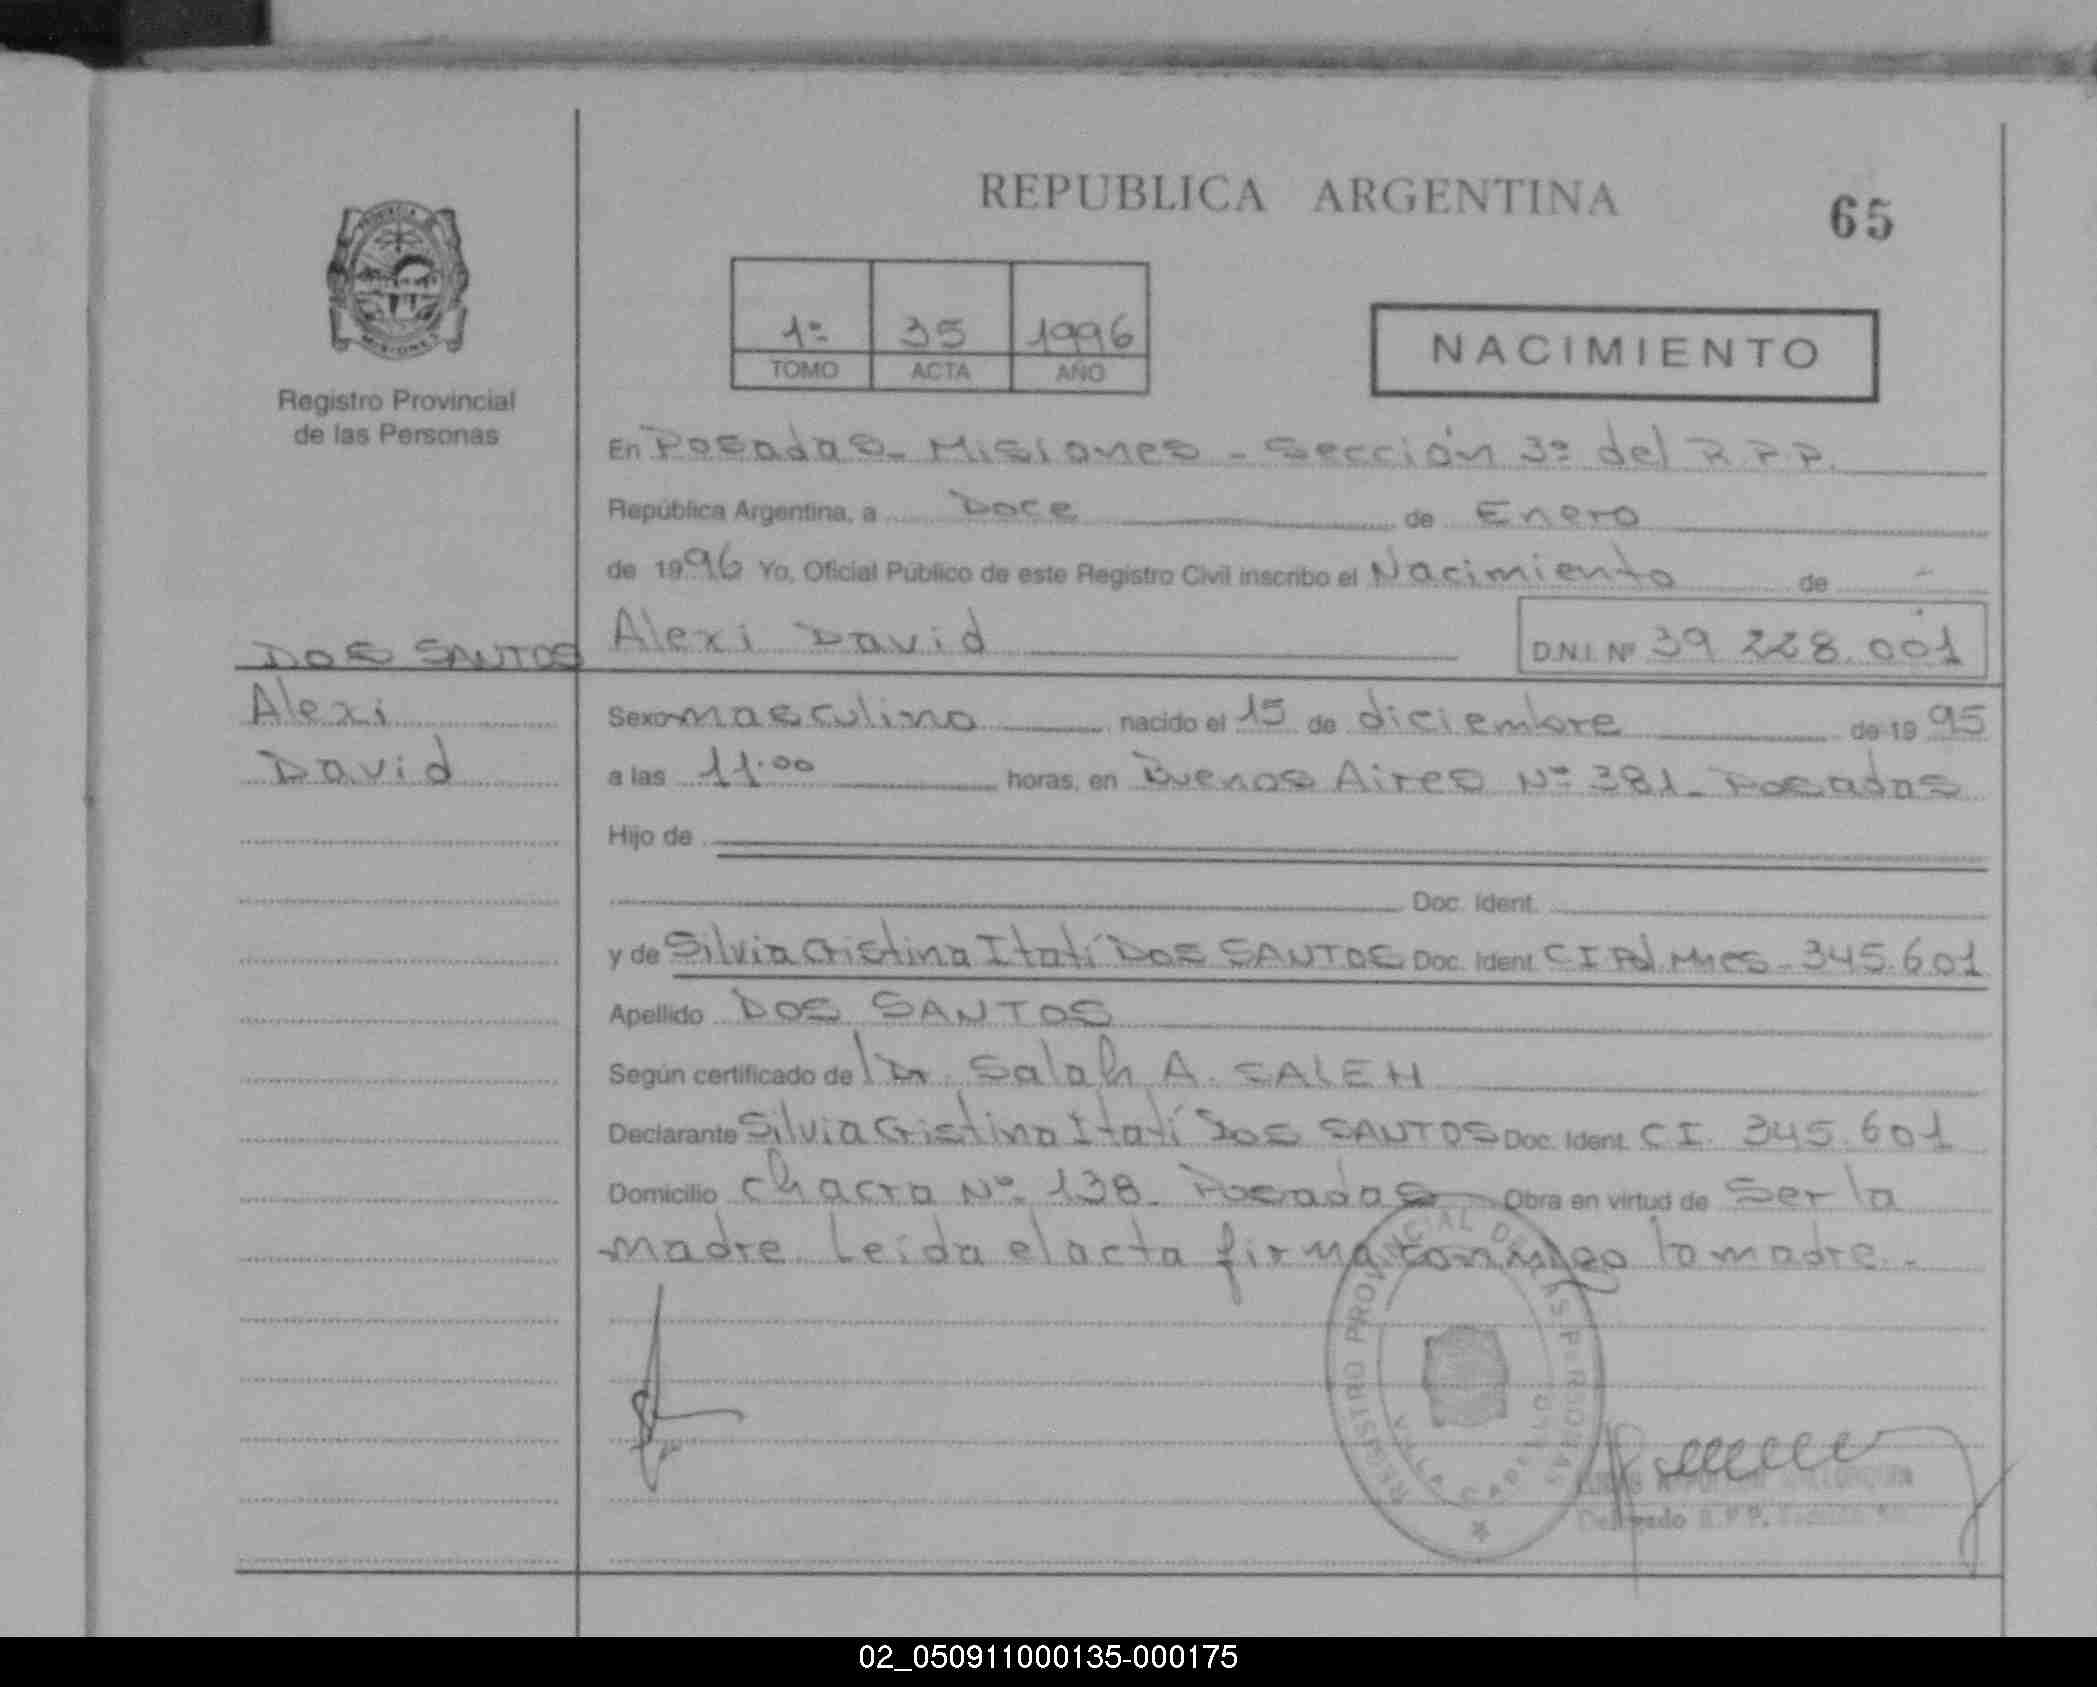 REPUBLICA ARGENTINA
65
1º 35 1996
TOMO ACTA AÑO
NACIMIENTO
MISIONES
Registro Provincial
de las Personas
En Posadas - Misiones - Sección 3º del R.P.P.
República Argentina, a Doce de Enero
de 1996 Yo, Oficial Público de este Registro Civil inscribo el Nacimiento de -
DOS SANTOS Alexi David D.N.I. Nº 39 228.001
Alexi Sexo masculino nacido el 15 de diciembre de 1995
David a las 11.00 horas, en Buenos Aires Nº 381 - Posadas
Hijo de
Doc. Ident.
y de Silvia Cristina Itatí DOS SANTOS Doc. Ident. CI Pol. Mnes - 345.601
Apellido DOS SANTOS
Según certificado de Dr. Salah A. SALEH
Declarante Silvia Cristina Itatí DOS SANTOS Doc. Ident. CI. 345.601
Domicilio Chacra Nº 138 - Posadas Obra en virtud de Ser la
madre. Leída el acta firma conmigo la madre.-
REGISTRO PROVINCIAL DE LAS PERSONAS
VILLA CABELLO
Delegado R.P.P.
02_050911000135-000175